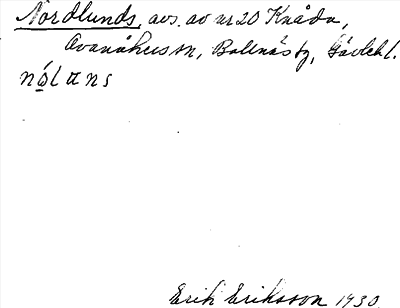 Nordlunds, avs. av nr 20 Knåda,
Ovanåkers sn, Bollnäs tg, Gävleb l.
nólans
Erik Eriksson 1930